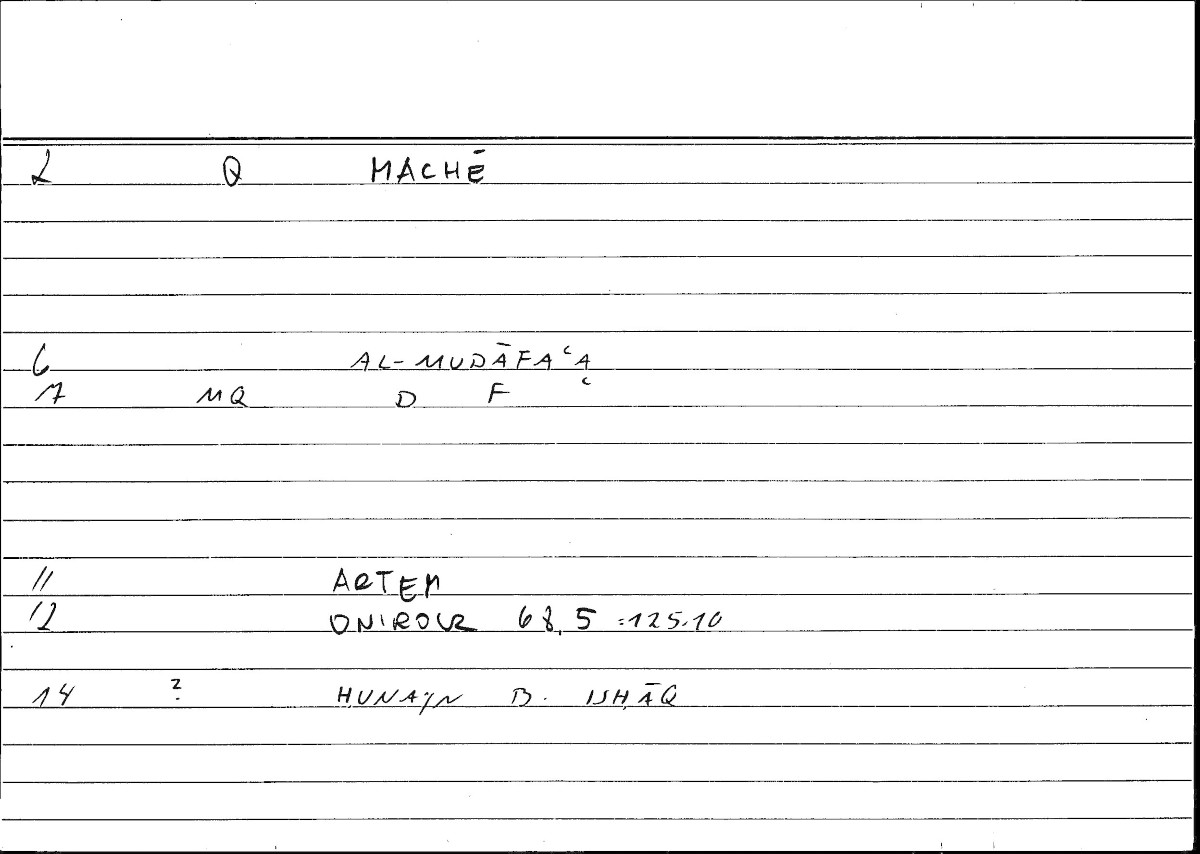 2 Q MACHĒ
6 AL-MUDĀFAʿA
7 MQ D F ʿ
11 ARTEM
12 ONIROCR 68,5 =125.10
14 ? ḤUNAYN B. ISḤĀQ